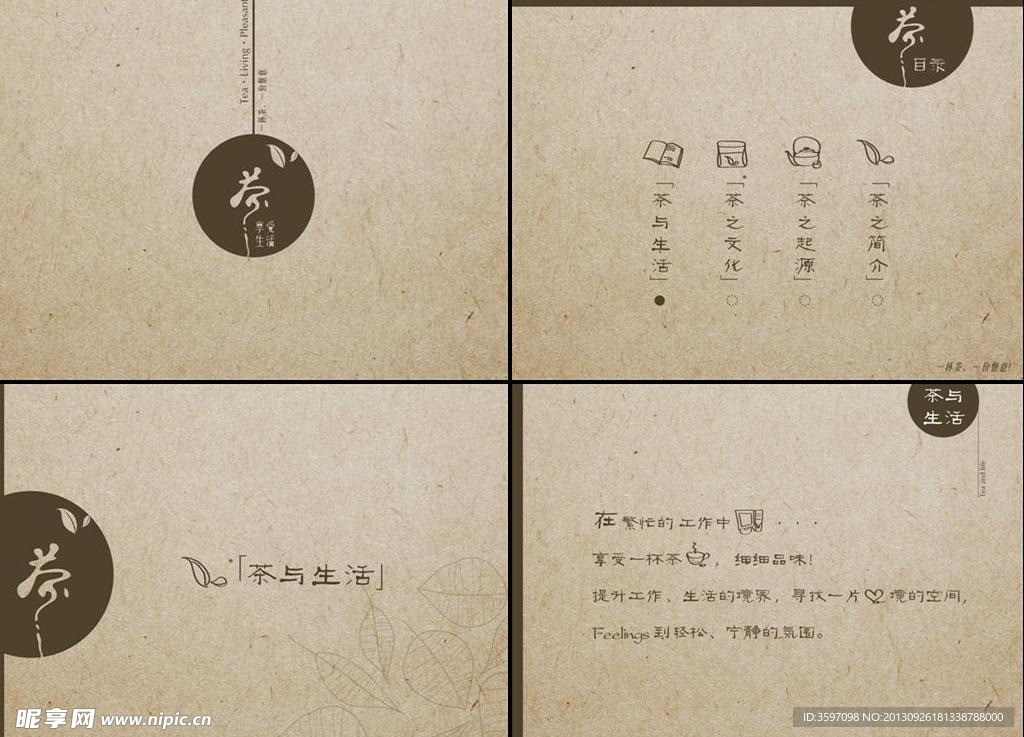 Tea · Living · Pleasant
一杯茶、一份惬意
茶
享受
生活
茶
目录
「茶与生活」
「茶之文化」
「茶之起源」
「茶之简介」
一杯茶、一份惬意!
茶
「茶与生活」
茶与
生活
Tea and life
在繁忙的工作中 · · ·
享受一杯茶，细细品味!
提升工作、生活的境界，寻找一片境的空间，
Feelings到轻松、宁静的氛围。
昵享网 www.nipic.cn
ID:3597098 NO:20130926181338788000